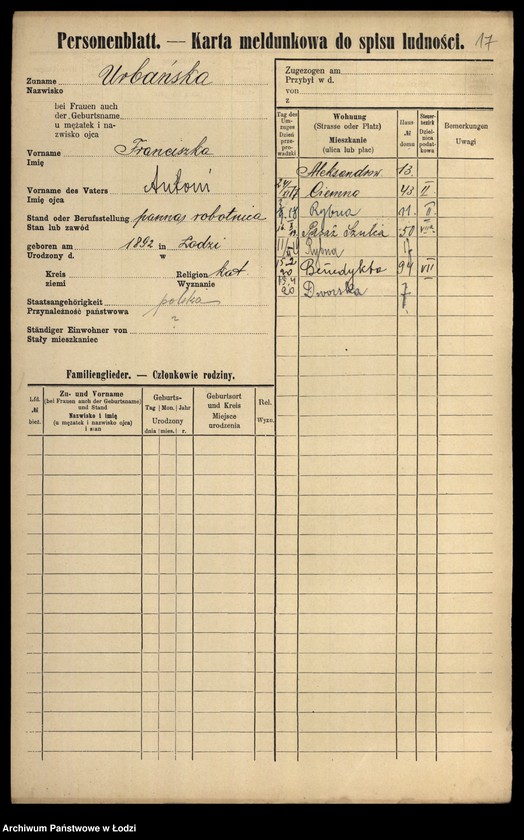 Personenblatt. — Karta meldunkowa do spisu ludności. 17
Zuname Urbańska
Nazwisko
bei Frauen auch
der Geburtsname
u mężatek i na-
zwisko ojca
Vorname Franciszka
Imię
Vorname des Vaters Antoni
Imię ojca
Stand oder Berufsstellung panna, robotnica
Stan lub zawód
geboren am 1892 in Łodzi
Urodzony d. w
Kreis Religion kat
ziemi Wyznanie
Staatsangehörigkeit polska
Przynależność państwowa
?
Ständiger Einwohner von
Stały mieszkaniec
Familienglieder. — Członkowie rodziny.
Lfd. № bież.
Zu- und Vorname
(bei Frauen auch der Geburtsname)
und Stand
Nazwisko i imię
(u mężatek i nazwisko ojca)
i stan
Geburts-
Tag Mon. Jahr
Urodzony
dnia mies. r.
Geburtsort
und Kreis
Miejsce
urodzenia
Rel.
Wyzn.
Zugezogen am
Przybył w d.
von
z
Tag des
Um-
zuges
Dzień
prze-
prowadzki
Wohnung
(Strasse oder Platz)
Mieszkanie
(ulica lub plac)
Haus-
№
domu
Steuer-
bezirk
Dziel-
nica
podat-
kowa
Bemerkungen
Uwagi
Aleksandrow. 13.
Ciemna 43 II
Rybna 11. II
50 VII
Rybna 17
15.2 20 Benedykta 94 VII
19.4 20 Dworska 7
Archiwum Państwowe w Łodzi